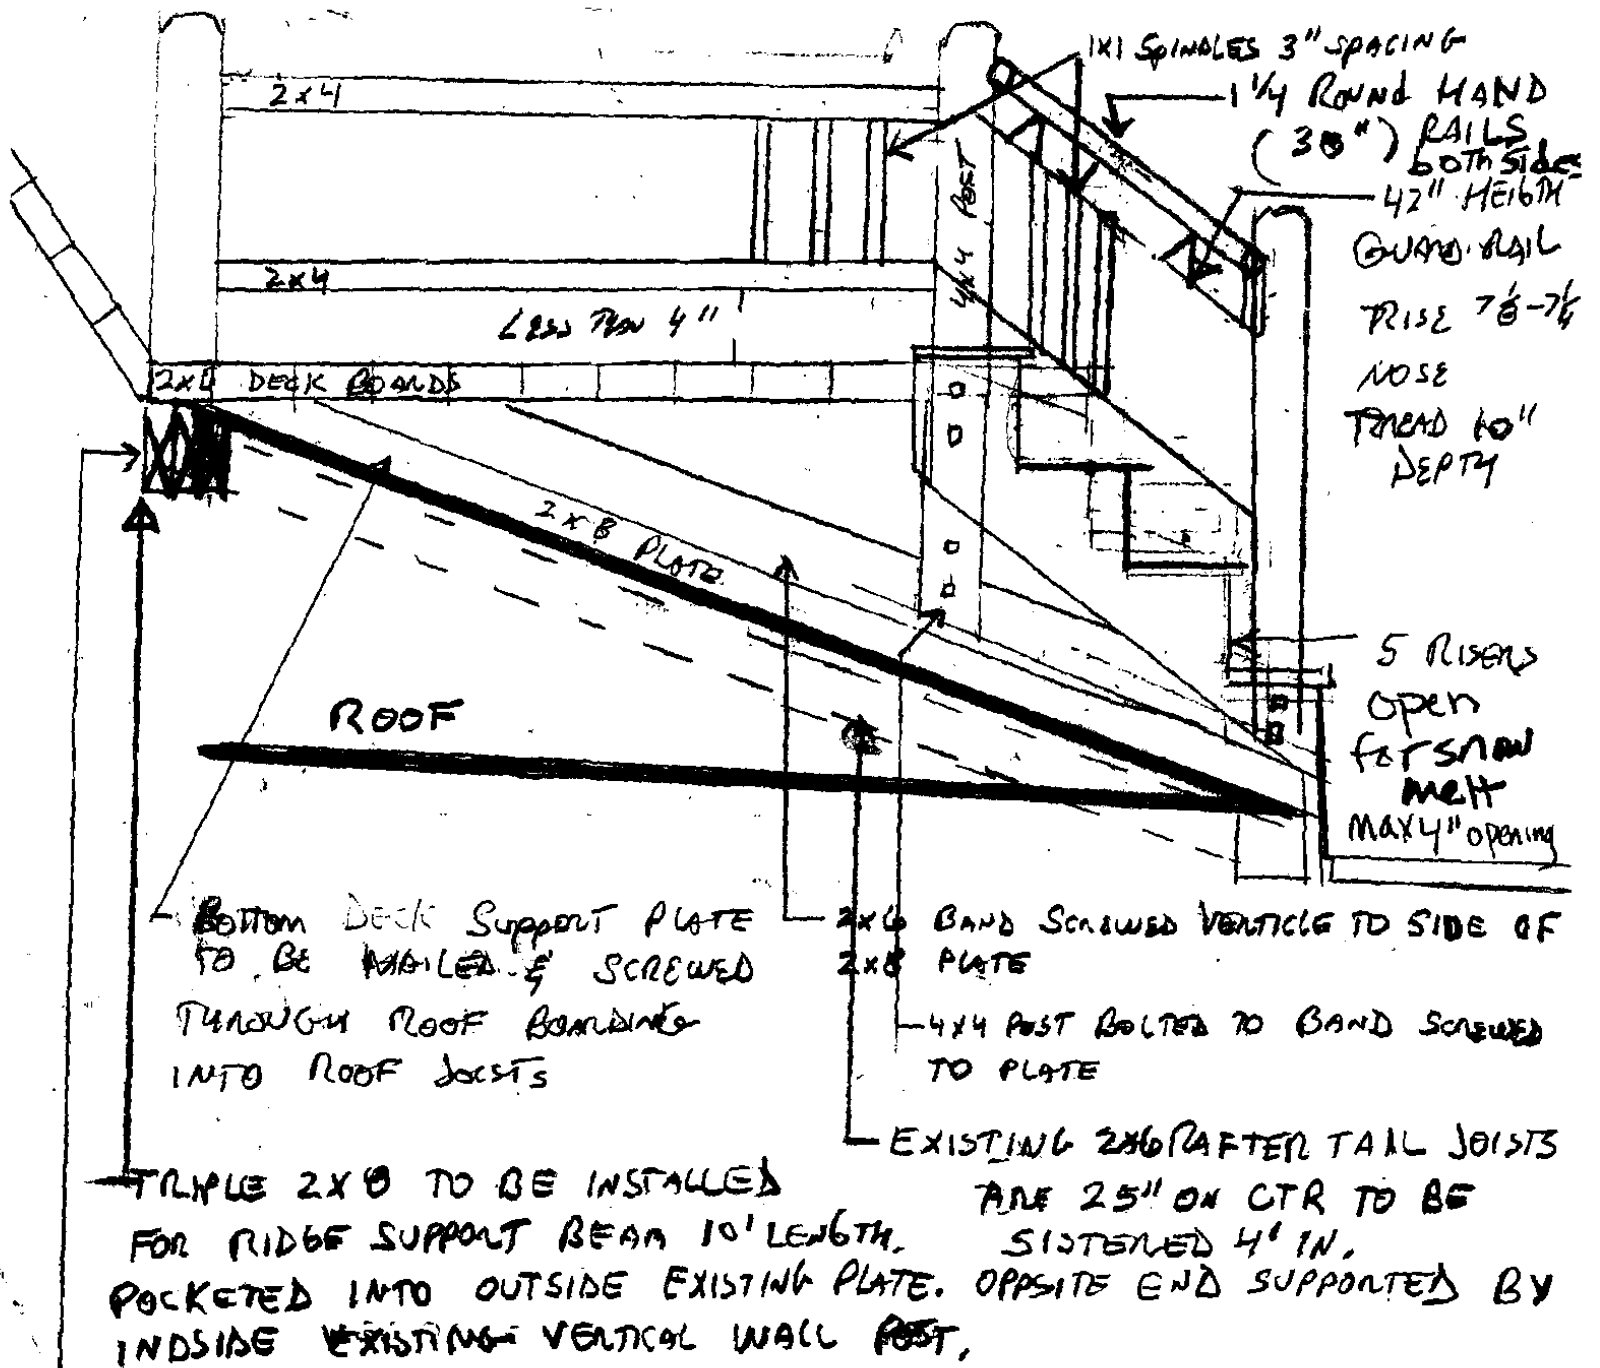 1X1 SPINDLES 3" SPACING
1 1/4 ROUND HAND
(38") RAILS
both sides
2x4
42" HEIGTH
GUARD RAIL
4x4 POST
2x4
RISE 7 1/8 - 7 1/4
LESS THAN 4"
NOSE
2x8 DECK BOARDS
TREAD 10"
DEPTH
2x8 PLATE
5 RISERS
open
for snow
melt
max 4" opening
ROOF
BOTTOM DECK SUPPORT PLATE
TO BE NAILED & SCREWED
THROUGH ROOF BOARDING
INTO ROOF JOISTS
2x6 BAND SCREWED VERTICLE TO SIDE OF
2x8 PLATE
4x4 POST BOLTED TO BAND SCREWED
TO PLATE
EXISTING 2x6 RAFTER TAIL JOISTS
ARE 25" ON CTR TO BE
SISTERED 4' IN.
TRIPLE 2X8 TO BE INSTALLED
FOR RIDGE SUPPORT BEAM 10' LENGTH.
POCKETED INTO OUTSIDE EXISTING PLATE. OPPOSITE END SUPPORTED BY
INDSIDE EXISTING VERTICAL WALL POST.